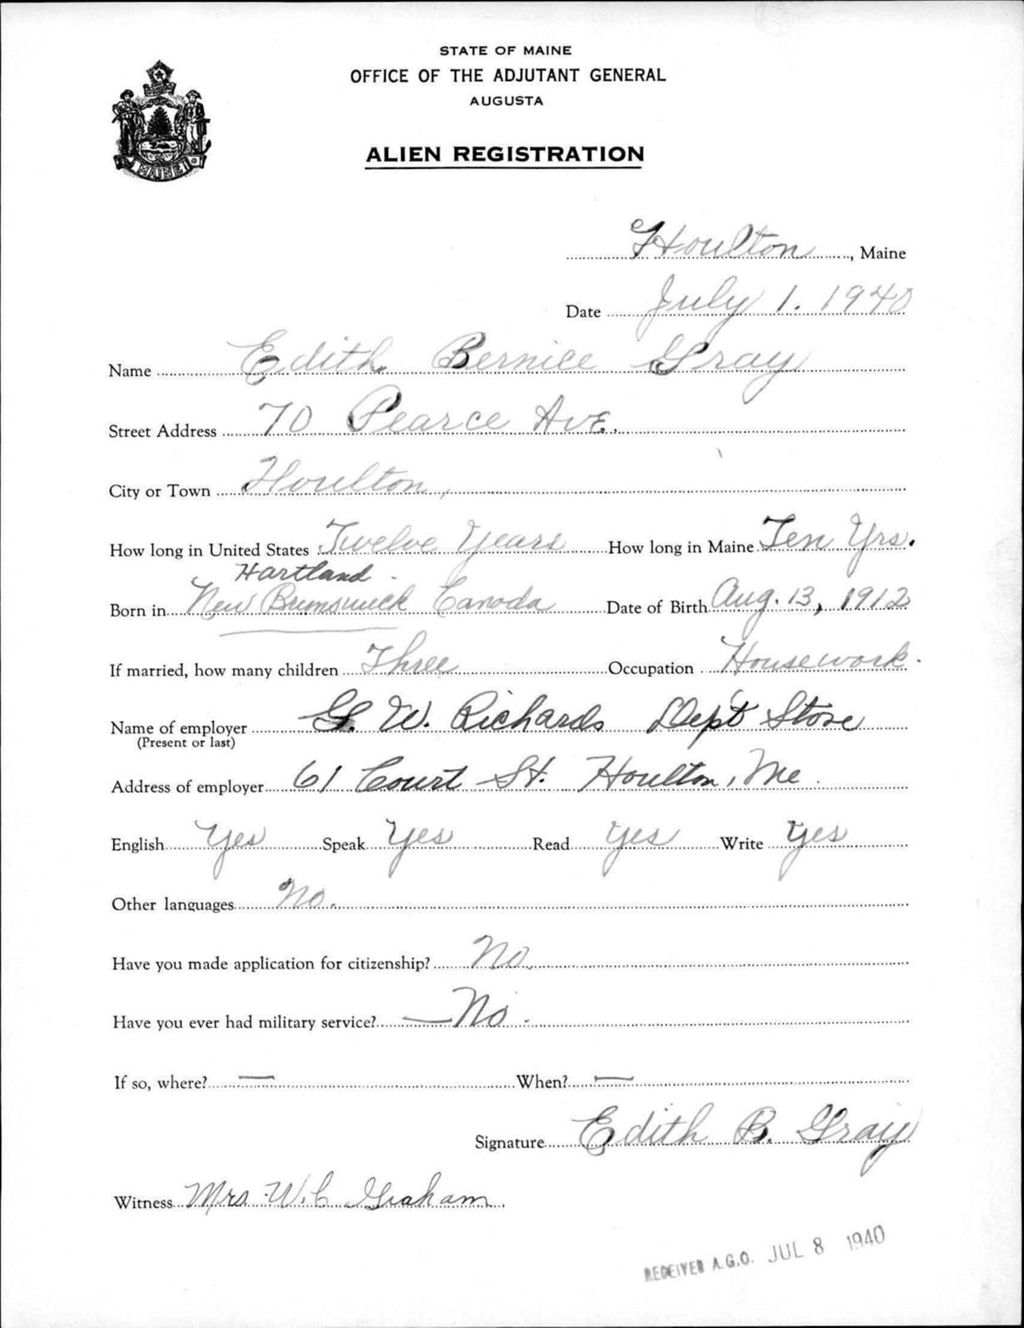 STATE OF MAINE
OFFICE OF THE ADJUTANT GENERAL
AUGUSTA
ALIEN REGISTRATION
MAINE
Houlton, Maine
Date July 1. 1940
Name Edith Bernice Gray
Street Address 70 Pearce Ave.
City or Town Houlton,
How long in United States Twelve Years How long in Maine Ten Yrs.
Hartland
Born in New Brunswick Canada Date of Birth Aug. 13, 1912
If married, how many children Three Occupation Housework.
Name of employer G. W. Richards Dep't Store
(Present or last)
Address of employer 61 Court St. Houlton, Me.
English Yes Speak Yes Read Yes Write Yes
Other languages No.
Have you made application for citizenship? No.
Have you ever had military service? — No.
If so, where? — When? —
Signature Edith B. Gray
Witness Mrs. W. C. Graham.
RECEIVED A.G.O. JUL 8 1940